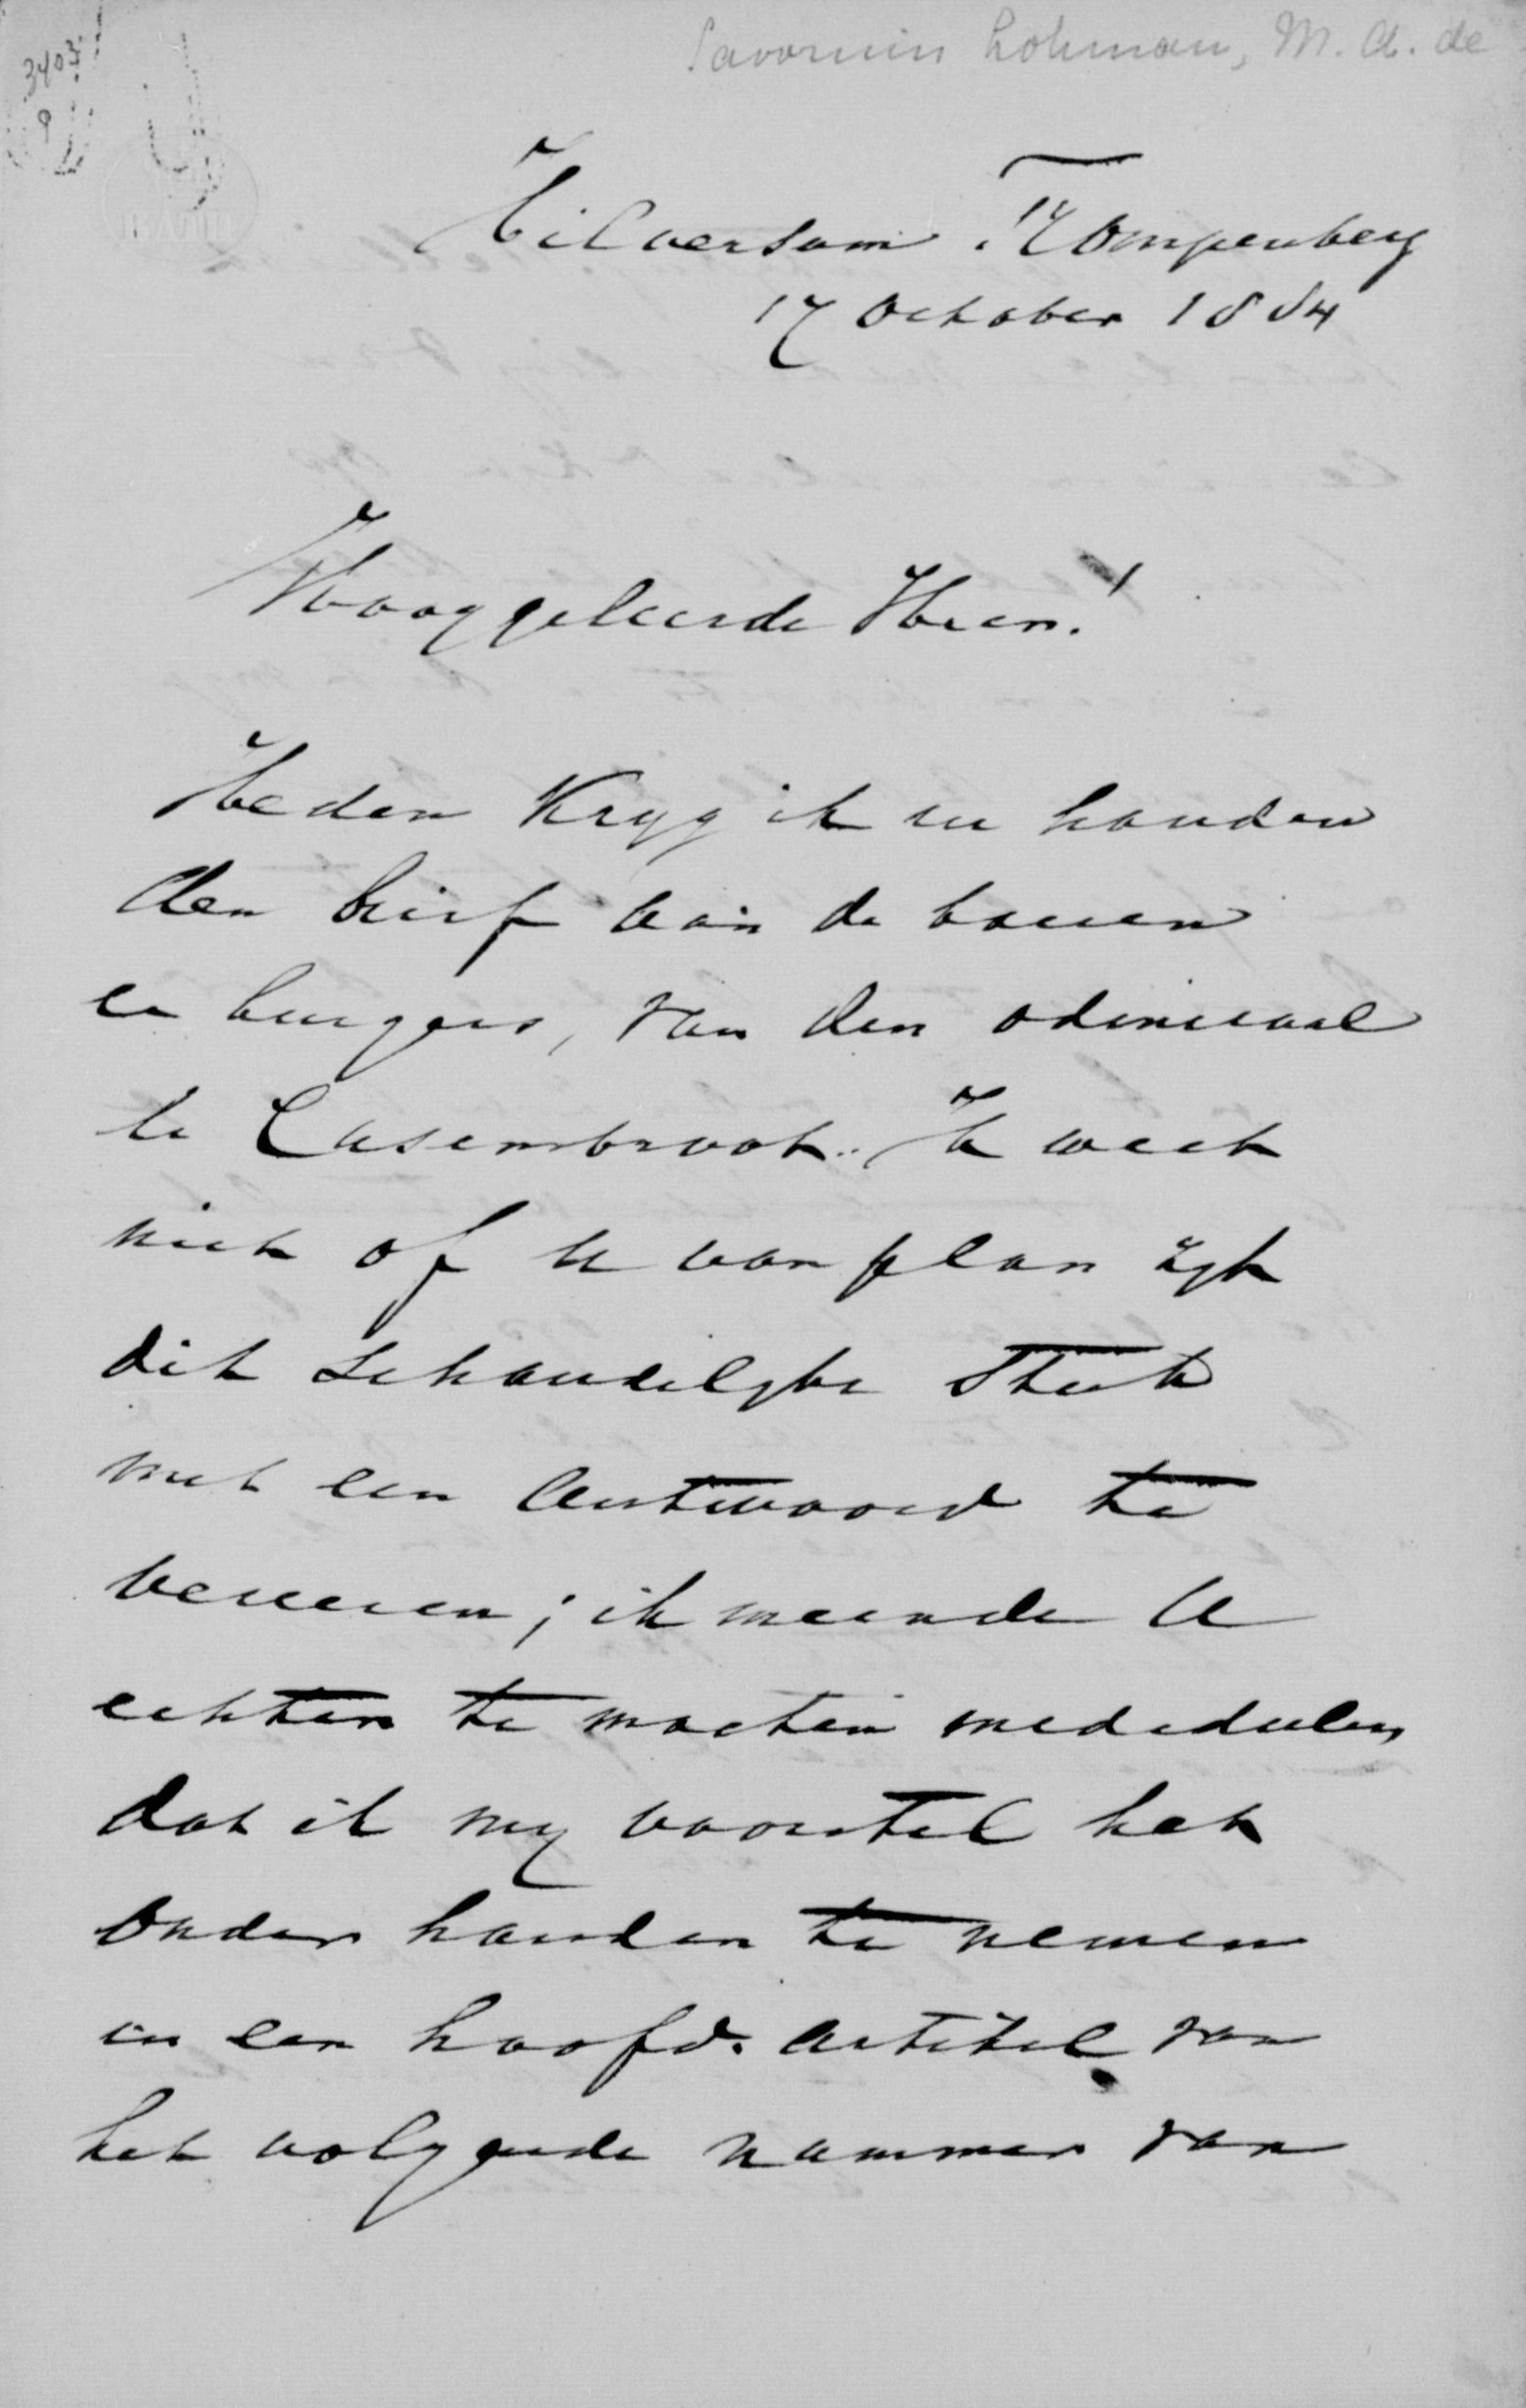 Savornin Lohman, M. A. de
3403
9
Hilversum. Trompenberg
17 October 1884
Hooggeleerde Heer!
Heden Kryg ik in handen
den brief aan de boeren
en burgers, van den admiraal
de Casembroot. Ik weet
niet of U van plan zyt
dit schandelyke Stuk
met een Antwoord te
vereeren; ik meende U
echter te moeten mededeelen,
dat ik my voorstel het
onder handen te nemen
in een hoofd. artikel van
het volgende nummer van